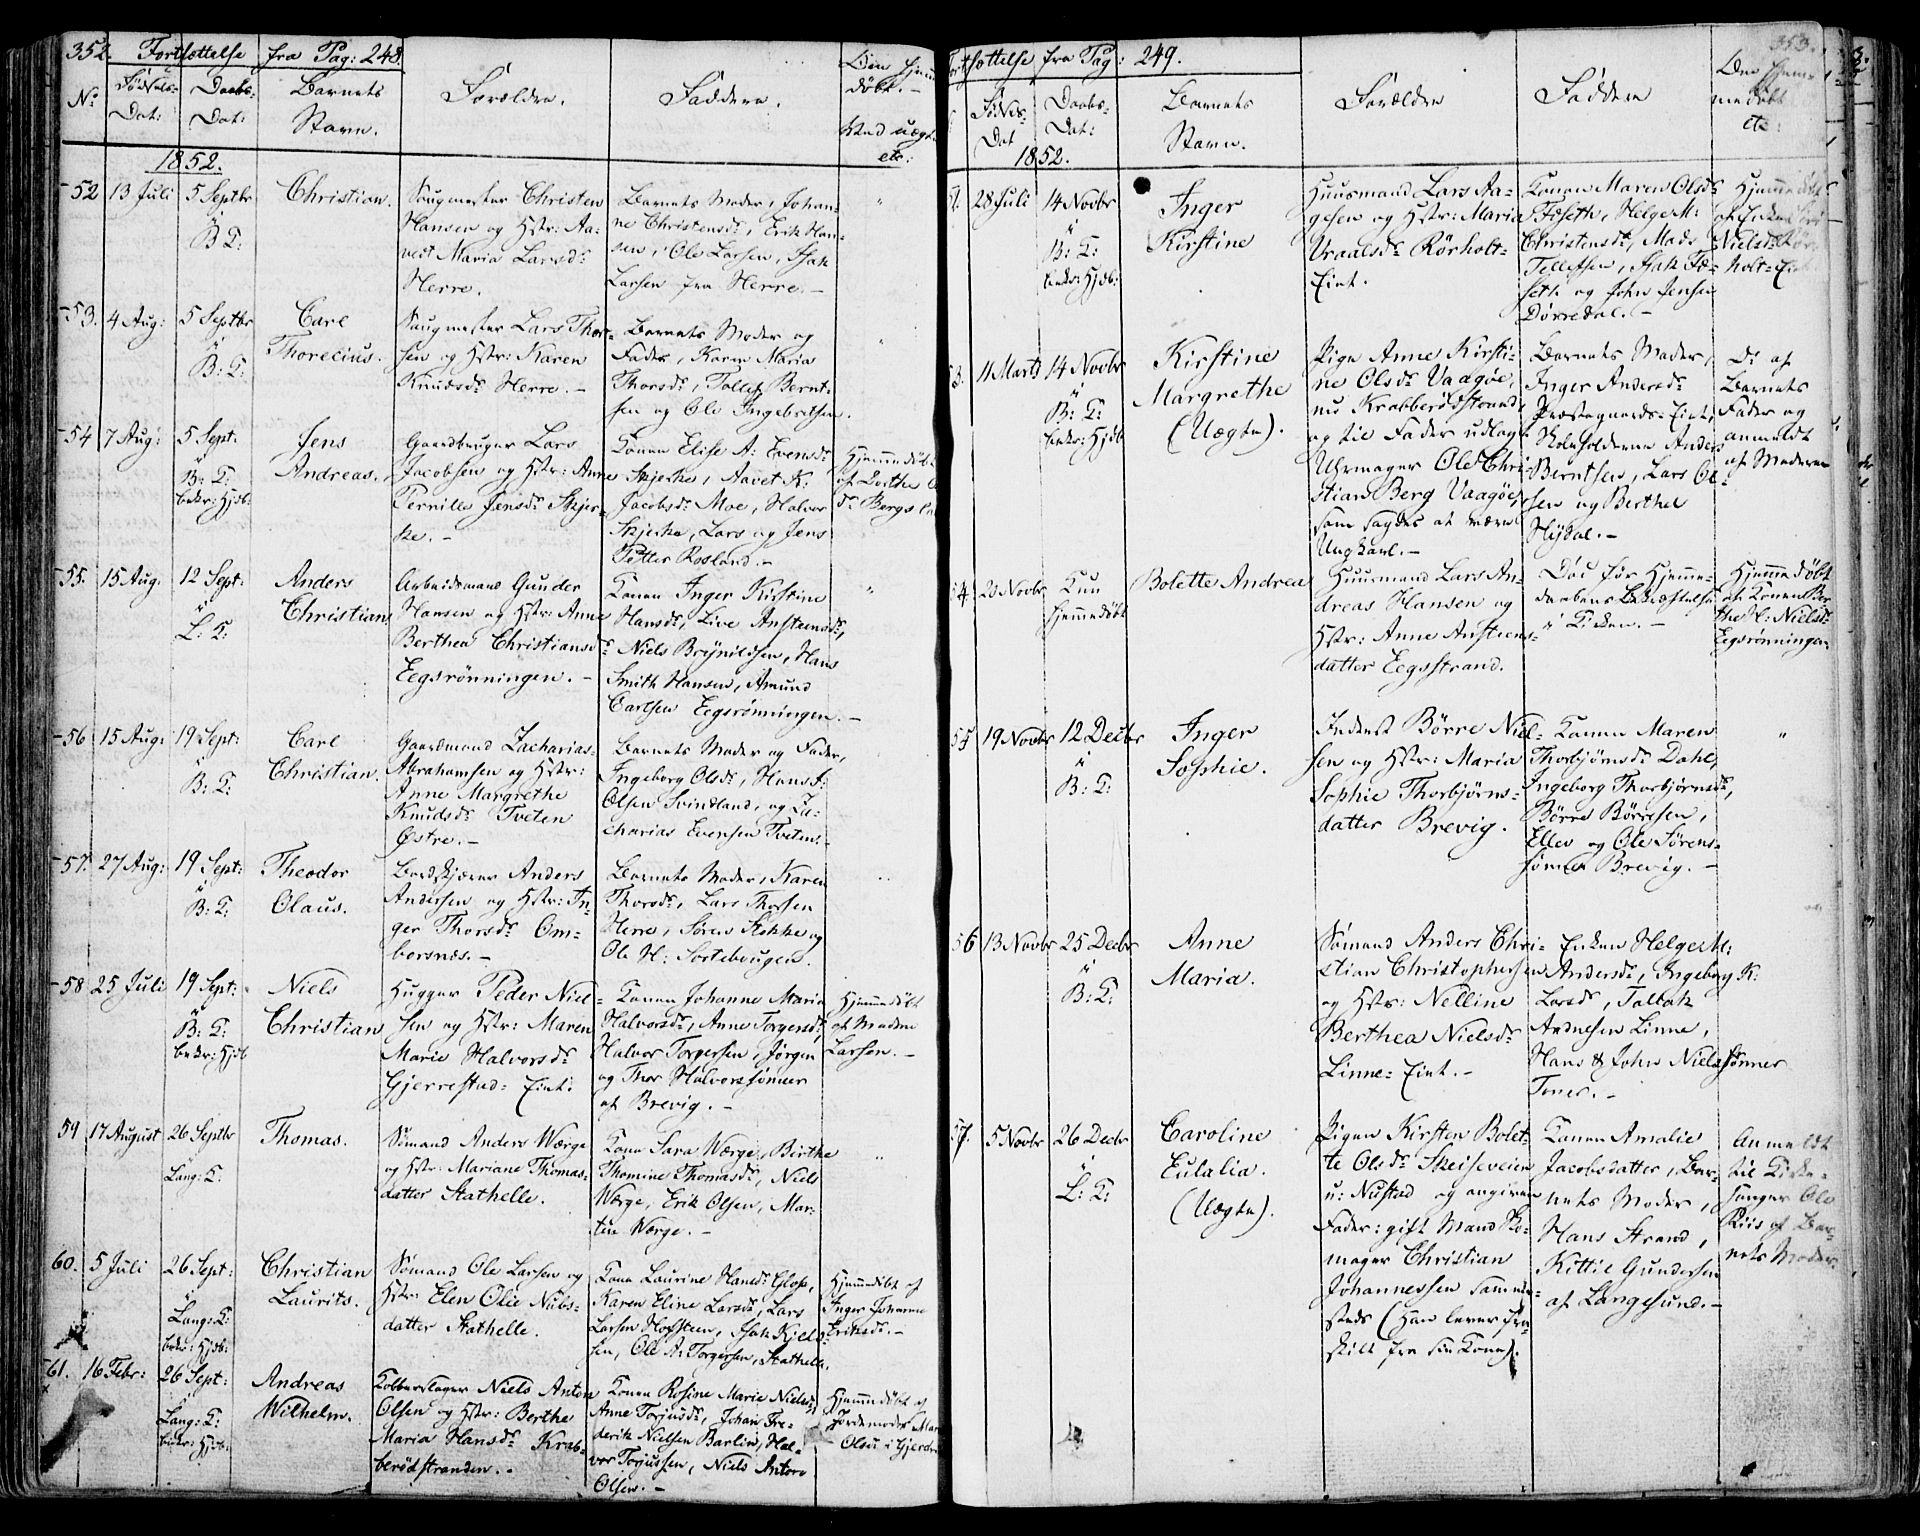 352. Fortsættelse fra Pag: 248.
No Fødsels-Dat: Daabs-Dat: Barnets Navn. Forældre. Faddere. Om hjemmedøbt. - Hvad uægte etc:
1852.
52 13 Juli 5 Septbr i B K: Christian.
Saugmester Christen
Hansen og Hstr: Aa-
vet Maria Larsdr
Herre.
Barnets Moder, Johan-
ne Christensdr, Erik Han-
sen, Ole Larsen, Isak
Larsen fra Herre. -
53. 4 Aug: 5 Septbr i B: K: Carl
Thorecius.
Saugmester Lars Thor-
sen og Hstr: Karen
Knudsdr Herre. -
Barnets Moder og
Fader, Karen Maria
Thorsdr, Tollef Bernt-
sen og Ole Ingebretsen.
54 7 Aug: 5 Sept: i B: K: bekr: Hjdb: Jens
Andreas.
Gaardbruger Lars
Jacobsen og Hstr: Anne
Pernille Jensdr Skjer-
ke. -
Konen Elise A: Evensdr
Skjerke, Aavet K.
Jacobsdr Moe, Halvor
Skjerke, Lars og Jens
Petter Rosland. -
Hjemmedøbt
af Dorthe
dr Bergs
55. 15 Aug. 12 Sept: i L: K: Anders
Christian
Arbeidsmand Gunder
Hansen og Hstr: Anne
Berthea Christiansdr
Eegsrønningen. -
Konen Inger Kirstine
Hansdr, Live Anstensdr,
Niels Brynildsen, Hans
Smith Hansen, Amund
Carlsen Eegsrønningen. -
56 15 Aug: 19 Sept: i B: K: Carl
Christian.
Gaardmand Zacharias
Abrahamsen og Hstr:
Anne Margrethe
Knudsdr Tveten
Østre. -
Barnets Moder og Fader,
Ingeborg Olsdr, Hans A:
Olsen Svindland, og Za-
charias Evensen Tveten. -
57. 27 Aug: 19 Sept: i B: K: Theodor
Olaus.
Bordskjærer Anders
Andersen og Hstr: In-
ger Thorsdr Om-
borsnæs. -
Barnets Moder, Karen
Thorsdr, Lars Thorsen
Herre, Søren Stokke og
Ole H: Sortebougen.
58 25 Juli 19 Sept: i B: K: bekr: Hjdb Niels
Christian
Hugger Peder Niel-
sen og Hstr: Maren
Marie Halvorsdr
Gjerrestad-Eint:
Konen Johanne Maria
Halvorsdr, Anne Torgersdr,
Halvor Torgersen, Jørgen
og Thor Halvorssønner
af Brevig. -
Hjemmedøbt
af Madme
Larsen. -
59 17 August 26 Septbr i Lang: K: Thomas.
Sømand Anders Wærge
og Hstr: Mariane Thomas-
datter Stathelle.
Kone Sara Wærge, Birthe
Thomine Thomasdr, Niels
Wærge, Erik Olsen, Mar-
tin Wærge. -
60. 5 Juli 26 Sept: i Lang: K: bekr: Hjdb: Christian
Laurits.
Sømand Ole Larsen og
Hstr: Elen Olie Nubs-
datter Stathelle.
Kone Laurine Hansdr Glose,
Karen Eline Larsdr, Lars
Larsen Hofsteen, Isak Kjels-
sen, Ole A: Torgersen, Stathelle.
Hjemmedøbt af
Inger Johanne
Eriksdr. -
61. 16 Febr: 26 Sept: Lang: K: bekr: Hjdb: Andreas
Wilhelm.
Tolderslager Niels Anton
Olsen og Hstr: Berthe
Maria Hansdr Krab-
berødstranden. -
Konen Rosine Marie Nielsdr,
Anne Torjusdr, Johan Fre-
derik Nielsen Barlin, Hal-
vor Torjussen, Niels Anton
Olsen. -
Hjemmedøbt af
Jordemoder
Olsen i Gjerde
353.
Fortsættelse fra Pag: 249.
Fødsels-Dat Daabs-Dat: Barnets Navn. Forældre Faddere Om hjemmedøbt etc:
1852.
28 Juli 14 Novbr i B: K: bekr: Hjdb: Inger
Kirstine
Huusmand Lars Aa-
gesen og Hstr: Maria
Vraalsdr Rörholt-
Eint.
Konen Maren Olsdr
Foseth, Helge M:
Christensdr, Mads
Tellefsen, Isak Fo-
seth og John Jensen
Dørredal. -
Hjemmedøbt
af Enken
Nielsdr Rør-
holt-Eint
3. 11 Marts 14 Novbr i B: K: bekr: Hjdb Kirstine
Margrethe
(Uægte).
Pige Anne Kirsti-
ne Olsdr Vaagøe,
nu Krabberødstrand,
og til Fader udlagt
Uhrmager Ole Chri-
stian Berg Vaagøe,
som sagdes at være
Ungkarl. -
Barnets Moder,
Inger Andersdr
Præstegaards-Eint,
Skoleholderne Anders
Berntsen, Lars Ol-
sen og Berthel
Hydal. -
Do af
Barnets
Fader og
anmeldt
af Moderen
54. 20 Novbr Kun
hjemmedøbt Bolette Andrea
Huusmand Lars An-
dreas Hansen og
Hstr: Anne Austens-
datter Eegsstrand.
Død før Hjemme-
daabens Bekræftelse
i Kirken. -
Hjemmedøbt
af Konen Ber-
the C: Nielsdr
Eegsrønningen
55 19 Novbr 12 Decbr i B: K: Inger
Sophie.
Inderst Börre Niel-
sen og Hstr: Maria
Sophie Thorbjörns-
datter Brevig.
Konen Maren
Thorbjørnsdr Dahl,
Ingeborg Thorbjørnsdr,
Børre Børresen,
Ellev og Ole Sørens-
sønner Brevig. -
56 13 Novbr 25 Decbr i B: K: Anne
Maria.
Sømand Anders Chri-
stian Christophersen
og Hstr: Nelline
Berthea Nielsdr
Linne-Eint. -
Enken Helge M:
Andersdr, Ingeborg K:
Larsdr, Tallak
Andnesen Linne,
Hans & John Nielssønner
Toner. -
57. 5 Novbr 26 Decbr i L: K: Caroline
Eulalia.
(Uægte).
Pigen Kirsten Bolet-
te Olsdr Skeiseveien
u: Nustad og angiven
Fader: gift Mand Sko-
mager Christian
Johannessen sammen-
steds (Han lever fra-
skilt fra sin Kone).
Konen Amalie
Jacobsdatter, Bar-
nets Moder,
Hans Strand,
Kittil Gundersen
af Langesund. -
Anmeldt
til Kirke-
sanger Ole
Riis af Bar-
nets Moder.